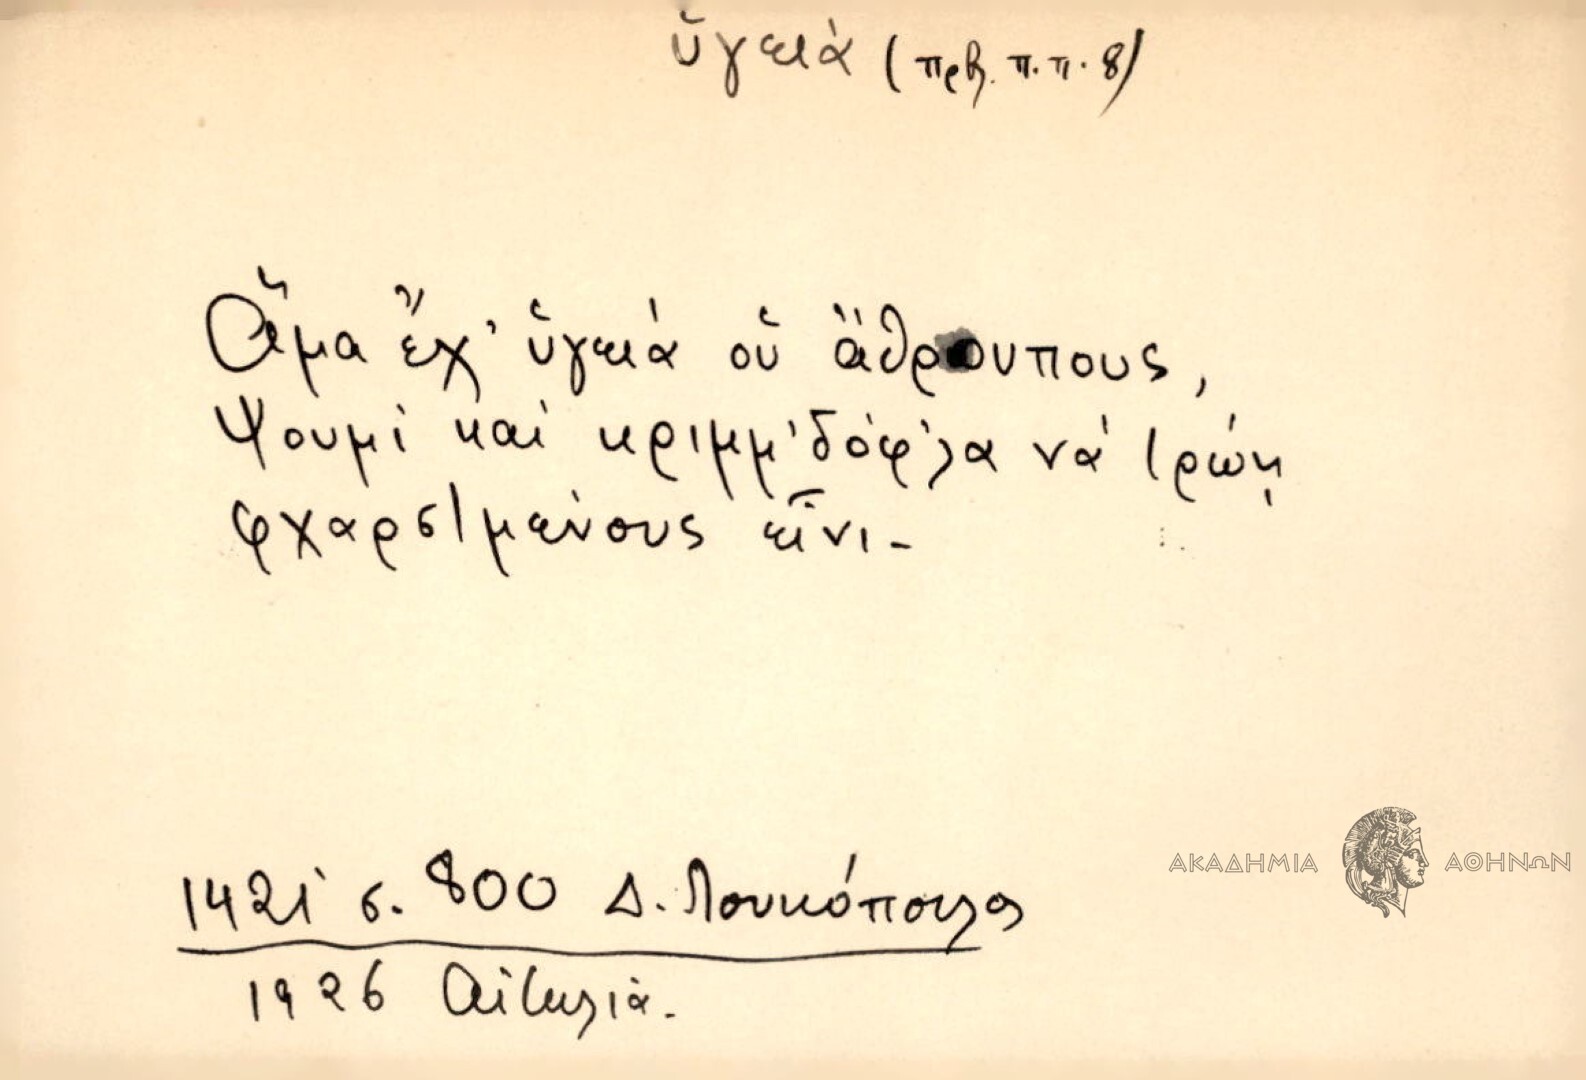 ὑγειά (πρβ. π.π. 8)
Ἅμα ἔχ' ὑγειά οὑ ἄθρουπους,
Ψουμὶ καὶ κριμμ'δόφ'λα νὰ τρώῃ
φχαρστμένους εἶνι_
1421 σ. 800 Δ. Λουκόπουλος
1926 Αἰτωλία.
ΑΚΑΔΗΜΙΑ ΑΘΗΝΩΝ